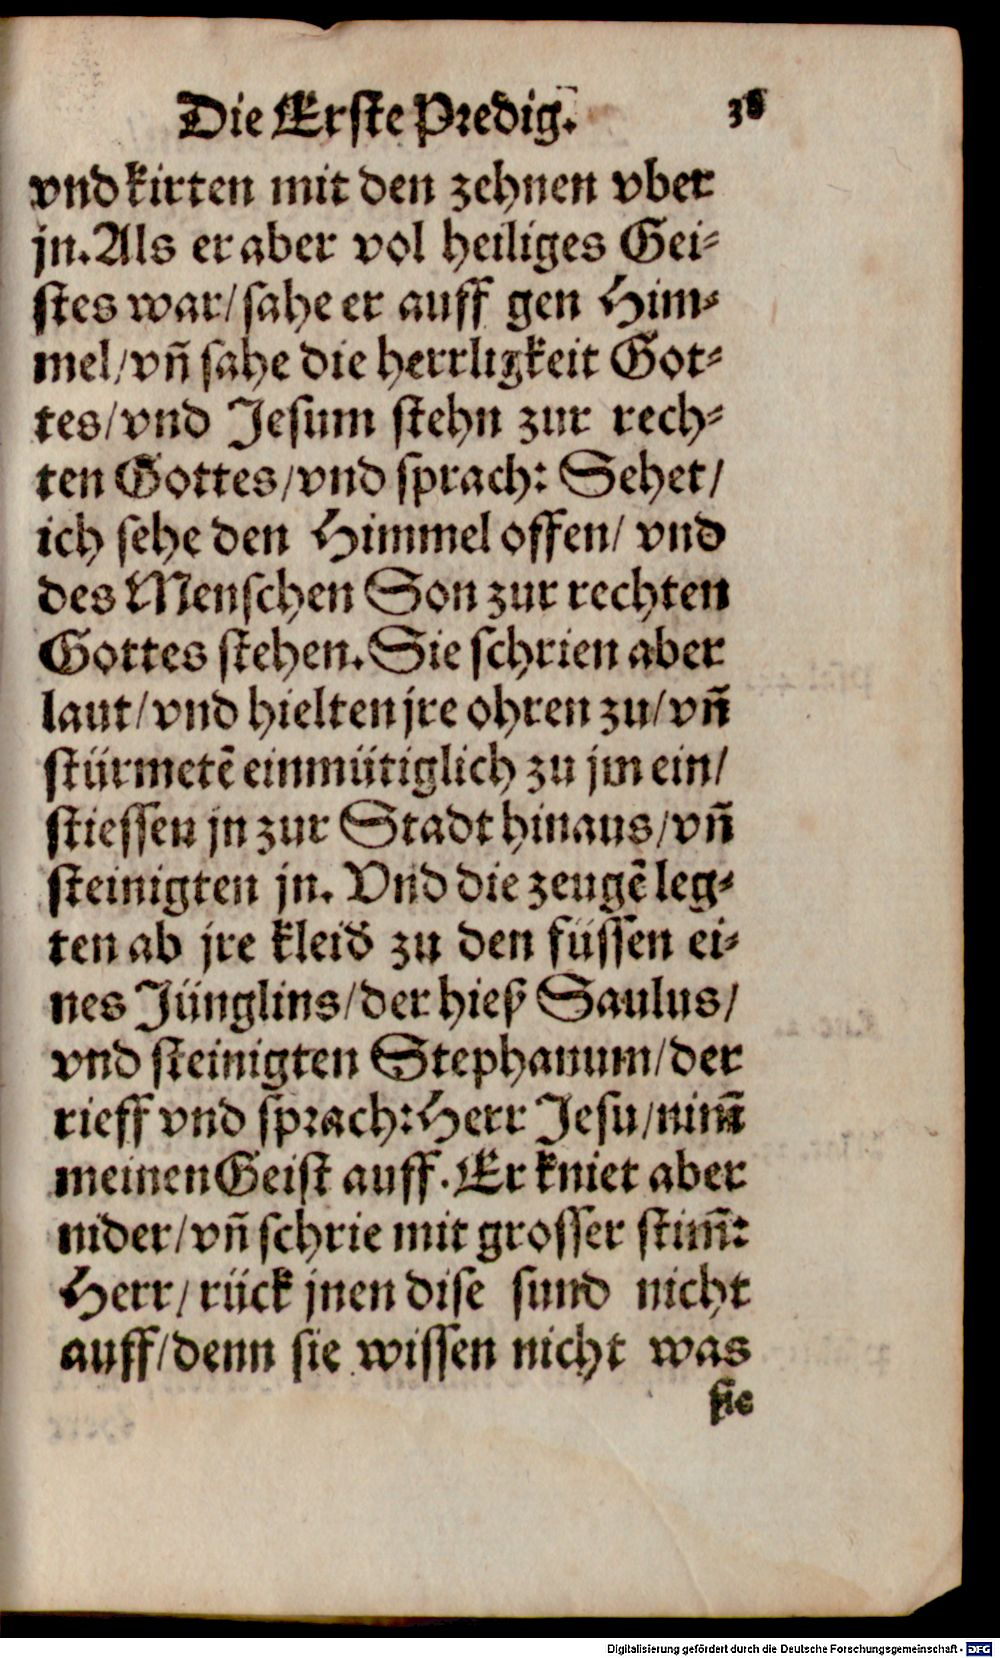 Die Erste Predig. 38
vnd kirten mit den zehnen vber
jn. Als er aber vol heiliges Gei⸗
stes war/ sahe er auff gen Him⸗
mel/ vn̄ sahe die herrligkeit Got⸗
tes/ vnd Jesum stehn zur rech⸗
ten Gottes/ vnd sprach: Sehet/
ich sehe den Himmel offen/ vnd
des Menschen Son zur rechten
Gottes stehen. Sie schrien aber
laut/ vnd hielten jre ohren zu/ vn̄
stürmetē einmütiglich zu jm ein/
stiessen jn zur Stadt hinaus/ vn̄
steinigten jn. Vnd die zeugē leg⸗
ten ab jre kleid zu den füssen ei⸗
nes Jünglins/ der hieß Saulus/
vnd steinigten Stephanum/ der
rieff vnd sprach: Herr Jesu/ nim̄
meinen Geist auff. Er kniet aber
nider/ vn̄ schrie mit grosser stim̄:
Herr/ rück jnen dise sund nicht
auff/ denn sie wissen nicht was
sie
Digitalisierung gefördert durch die Deutsche Forschungsgemeinschaft - DFG